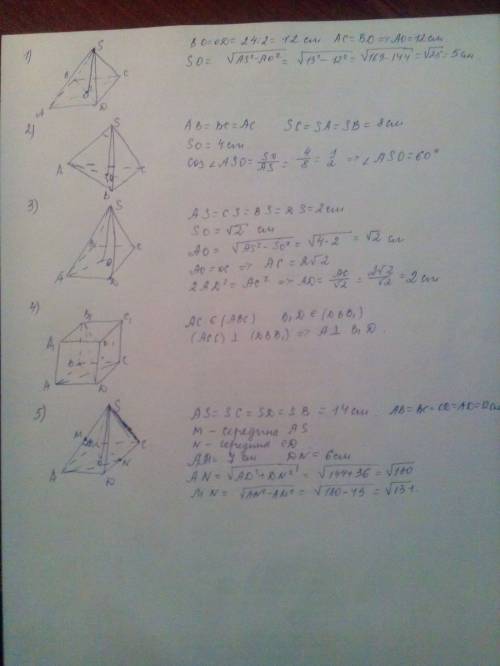 1)
S
B
C
O
A
D
BO=OD= 24:2 = 12 см AC=BD ⇒ AO=12см
SO= √AS²-AO² = √13²-12² = √169-144 = √25 = 5см
2)
S
A
O
B
AB=BC=AC SC=SA=SB=8см
SO=4см
cos∠ASO= SO/AS = 4/8 = 1/2 ⇒ ∠ASO=60°
3)
S
B
C
A
O
D
AS=CS=BS=DS=2см
SO=√2 см
AO= √AS²-SO² = √4-2 = √2 см
AO=OC ⇒ AC=2√2
2AD²=AC² ⇒ AD= AC/√2 = 2√2/√2 = 2см
4)
B₁
C₁
A₁
D₁
B
C
A
D
AC ∈ (ABC) B₁D ∈ (DBB₁)
(ACC) ⊥ (DBB₁) ⇒ A⊥ B₁D.
5)
S
M
B
C
N
A
O
D
AS=SC=SD=SB = 14см AB=BC=CD=AD=12см
M - середина AS
N - середина CD
AM= 7 см DN= 6см
AN= √AD²+DN² = √144+36 = √180
MN= √AN²-AM² = √180-49 = √131